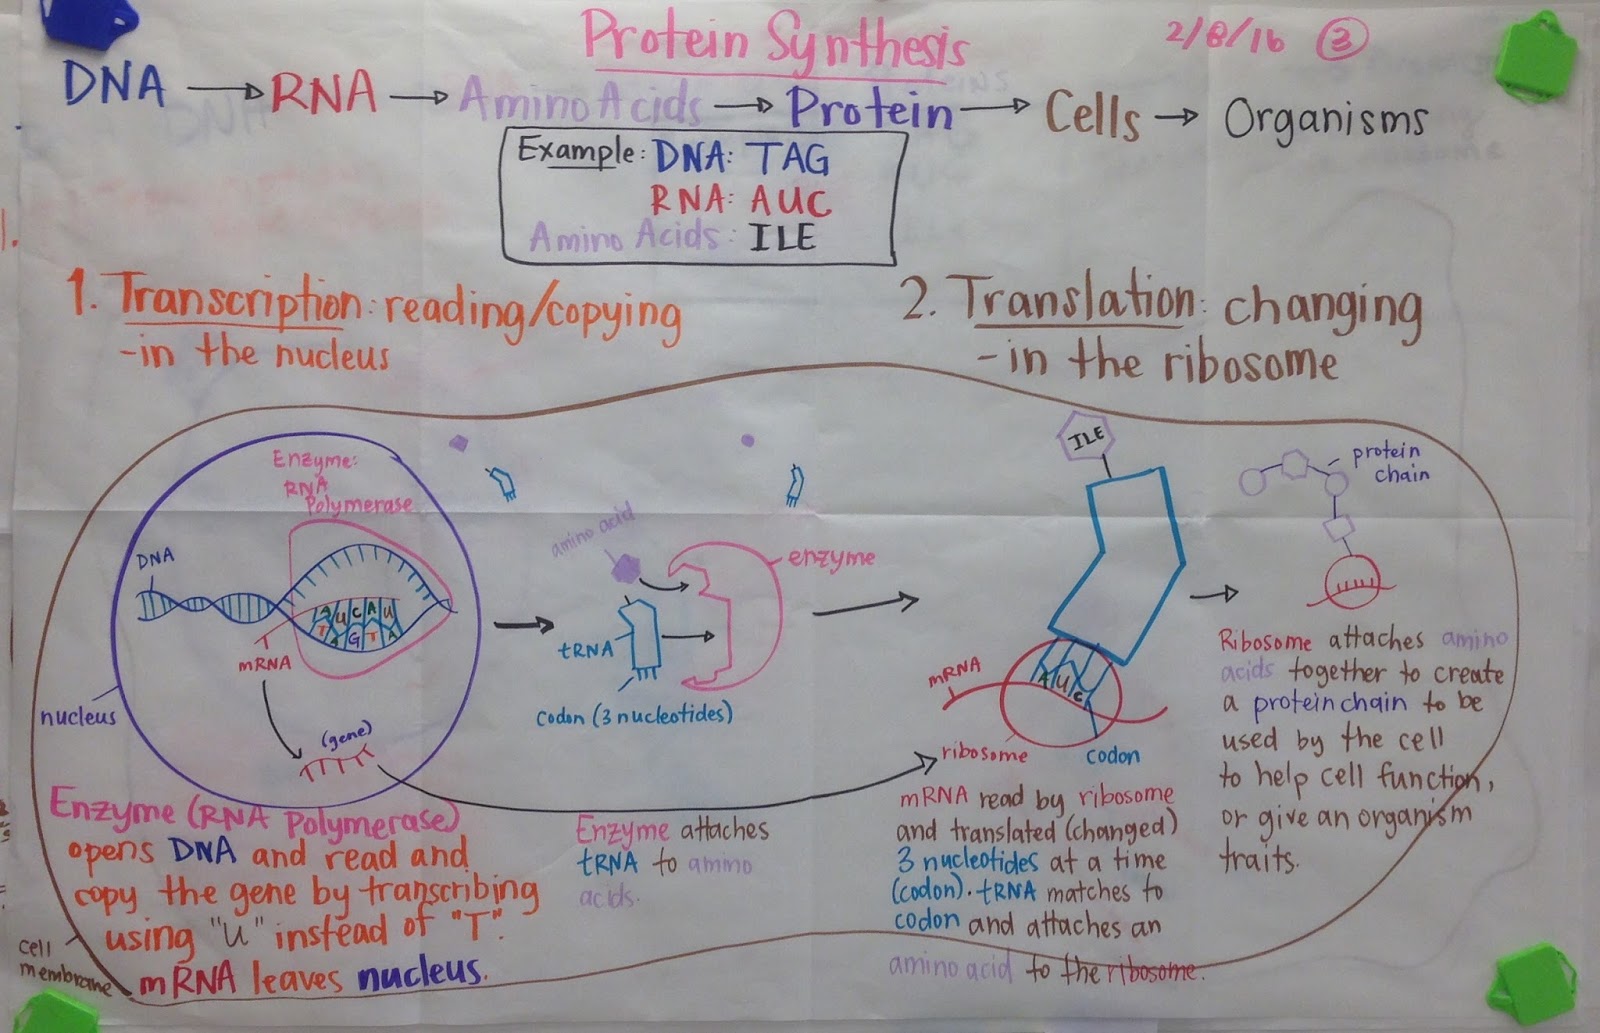 Protein Synthesis
2/8/16 3
DNA → RNA → Amino Acids → Protein → Cells → Organisms
Example: DNA: TAG
RNA: AUC
Amino Acids: ILE
1. Transcription: reading/copying
-in the nucleus
2. Translation: changing
-in the ribosome
Enzyme:
RNA
Polymerase
DNA
A U C A U
T A G T A
mRNA
nucleus
(gene)
Enzyme (RNA Polymerase)
opens DNA and read and
copy the gene by transcribing
using "U" instead of "T".
mRNA leaves nucleus.
cell
membrane
amino acid
enzyme
tRNA
codon (3 nucleotides)
Enzyme attaches
tRNA to amino
acids.
ILE
mRNA
A U C
ribosome
codon
mRNA read by ribosome
and translated (changed)
3 nucleotides at a time
(codon). tRNA matches to
codon and attaches an
amino acid to the ribosome.
protein
chain
Ribosome attaches amino
acids together to create
a protein chain to be
used by the cell
to help cell function,
or give an organism
traits.